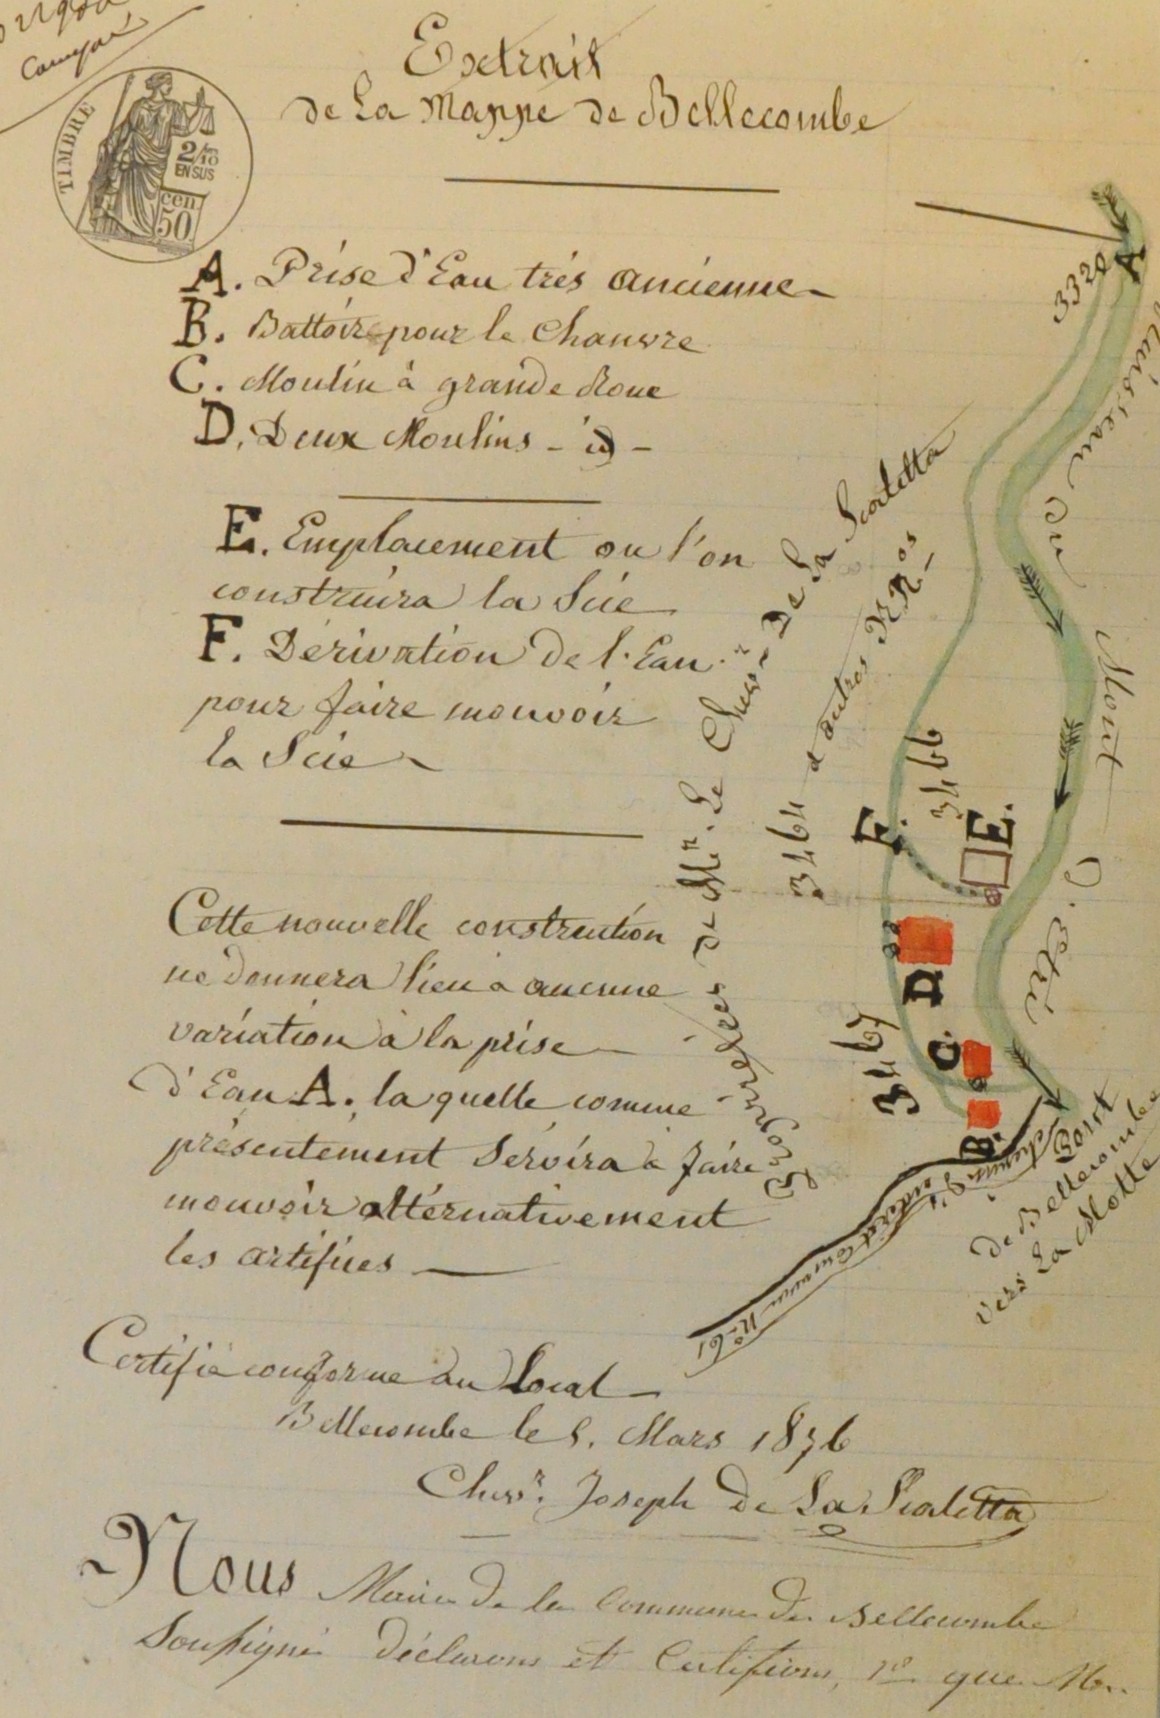 Compari
TIMBRE
2/10
EN SUS
cen.
50
Extrait
de La Mappe de Bellecombe
A. Prise d'Eau très ancienne
B. Battoir pour le Chanvre
C. Moulin à grande Roue
D. Deux Moulins - id -
E. Emplacement ou l'on
construira la Scie
F. Dérivation de l'Eau
pour faire mouvoir
la Scie
Cette nouvelle construction
ne donnera lieu à aucune
variation à la prise
d'Eau A. la quelle comme
présentement servira à faire
mouvoir alternativement
les artifices
Certifié conforme au Local
Bellecombe le 5. Mars 1876
Chevr. Joseph De La Scaletta
Nous Maire de la Commune de Bellecombe
Soussigné déclarons et Certifions, 1o que Mr.
A
3320
Ruisseau du Mont
Propriétées de Mr. Le Chevr De La Scaletta
3464 & autres NNos
3466
F.
E.
D
C.
3467
B
Chemin d'intérêt Commun No 61
de Bellecombe
vers La Motte